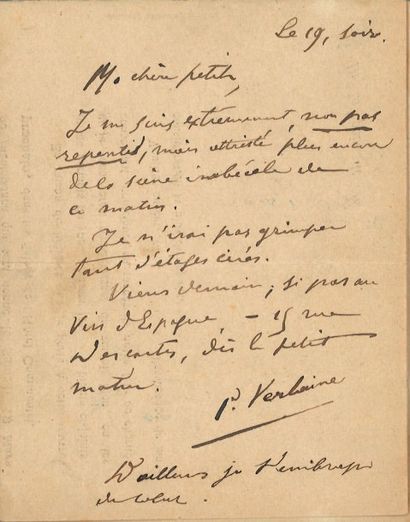 Le 19, soir.
Ma chère petite,
Je me suis extrêmement, non pas
repenti, mais attristé plus encore
de la scène imbécile de
ce matin.
Je n'irai pas grimper
tant d'étages cirés.
Viens demain, si pas au
Vin d'Espagne — 15 rue
Descartes, dès le petit
matin.
P. Verlaine
D'ailleurs je t'embrasse
de cœur.